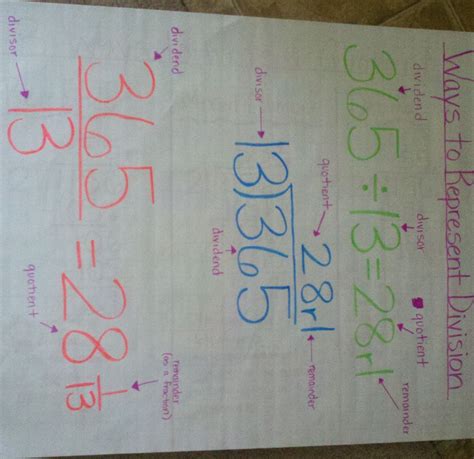 Ways to Represent Division
dividend divisor quotient remainder
365 ÷ 13 = 28 r1
quotient remainder
28 r1
divisor 13)365
dividend
dividend quotient remainder
(as a fraction)
365/13 = 28 1/13
divisor